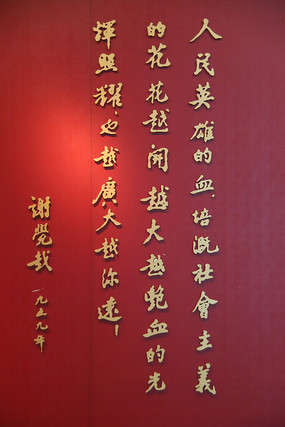 人民英雄的血,培溉社會主義
的花,花越開越大越艷,血的光
輝照耀,也越廣大越弥遠!
謝覺哉
一九五九年